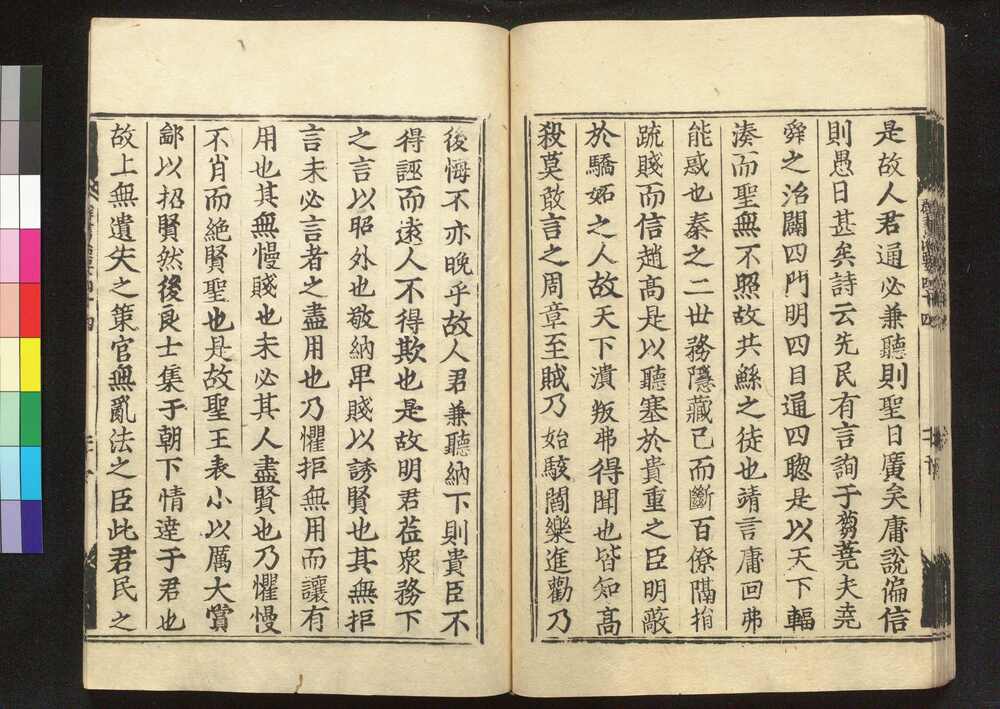 是故人君通必兼聽則聖日廣矣庸說偏信
則愚日甚矣詩云先民有言詢于蒭蕘夫堯
舜之治闢四門明四目通四聰是以天下輻
湊而聖無不照故共鯀之徒也靖言庸回弗
能惑也秦之二世務隱藏己而斷百僚隔捐
疏賤而信趙高是以聽塞於貴重之臣明蔽
於驕妬之人故天下潰叛弗得聞也皆知高
殺莫敢言之周章至賊乃始駭閻樂進勸乃
後悔不亦晚乎故人君兼聽納下則貴臣不
得誣而遠人不得欺也是故明君莅衆務下
之言以昭外也敬納卑賤以誘賢也其無拒
言未必言者之盡用也乃懼拒無用而讓有
用也其無慢賤也未必其人盡賢也乃懼慢
不肖而絶賢聖也是故聖王表小以厲大賞
鄙以招賢然後良士集于朝下情達于君也
故上無遺失之策官無亂法之臣此君民之